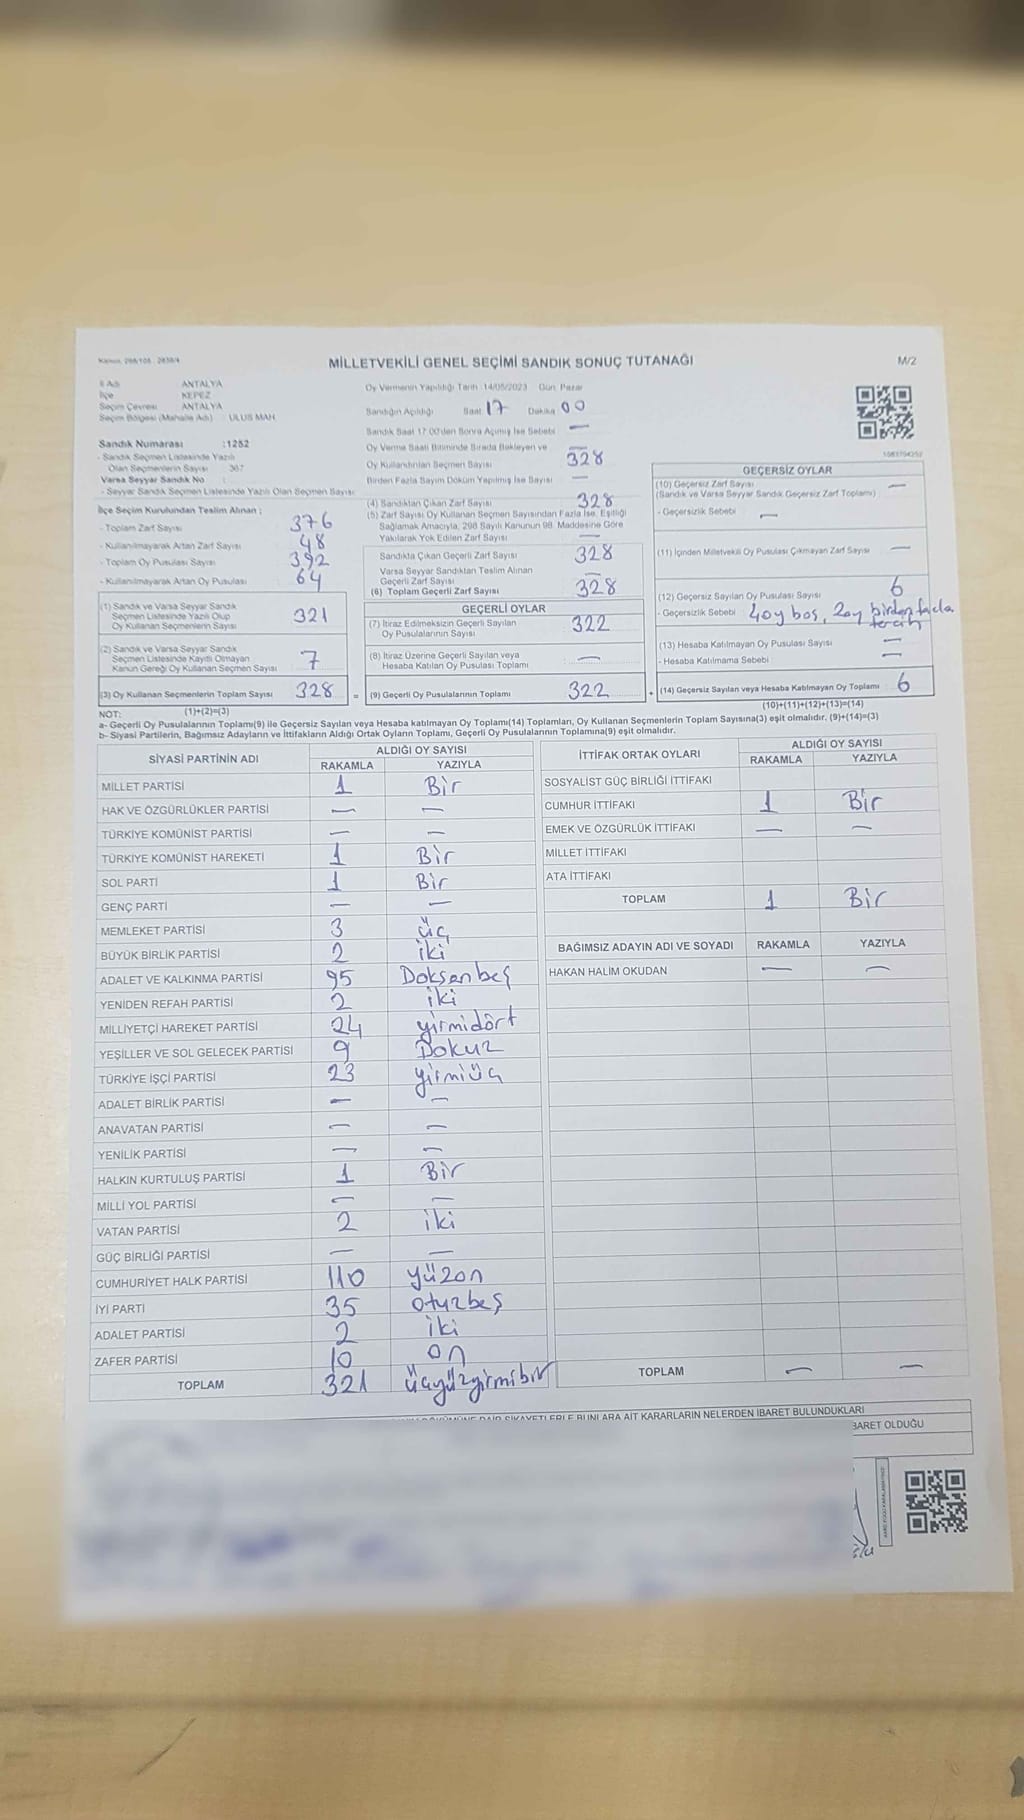 MİLLETVEKİLİ GENEL SEÇİMİ SANDIK SONUÇ TUTANAĞI
M/2
İl Adı ANTALYA
İlçe KEPEZ
Seçim Çevresi ANTALYA
Seçim Bölgesi (Mahalle Adı) : ULUS MAH.
Sandık Numarası :1252
- Sandık Seçmen Listesinde Yazılı
Olan Seçmenlerin Sayısı : 367
Varsa Seyyar Sandık No :
- Seyyar Sandık Seçmen Listesinde Yazılı Olan Seçmen Sayısı
İlçe Seçim Kurulundan Teslim Alınan ;
- Toplam Zarf Sayısı 376
- Kullanılmayarak Artan Zarf Sayısı 48
- Toplam Oy Pusulası Sayısı 392
- Kullanılmayarak Artan Oy Pusulası 64
(1) Sandık ve Varsa Seyyar Sandık
Seçmen Listesinde Yazılı Olup
Oy Kullanan Seçmenlerin Sayısı 321
(2) Sandık ve Varsa Seyyar Sandık
Seçmen Listesinde Kayıtlı Olmayan
Kanun Gereği Oy Kullanan Seçmen Sayısı 7
(3) Oy Kullanan Seçmenlerin Toplam Sayısı 328 =
Oy Vermenin Yapıldığı Tarih :14/05/2023 Gün: Pazar
Sandığın Açıldığı Saat 17 Dakika 00
Sandık Saat 17:00'den Sonra Açılmış İse Sebebi —
Oy Verme Saati Bitiminde Sırada Bekleyen ve —
Oy Kullandırılan Seçmen Sayısı 328
Birden Fazla Sayım Döküm Yapılmış İse Sayısı —
(4) Sandıktan Çıkan Zarf Sayısı 328
(5) Zarf Sayısı Oy Kullanan Seçmen Sayısından Fazla İse, Eşitliği
Sağlamak Amacıyla, 298 Sayılı Kanunun 98. Maddesine Göre
Yakılarak Yok Edilen Zarf Sayısı —
Sandıkta Çıkan Geçerli Zarf Sayısı 328
Varsa Seyyar Sandıktan Teslim Alınan
Geçerli Zarf Sayısı —
(6) Toplam Geçerli Zarf Sayısı 328
GEÇERLİ OYLAR
(7) İtiraz Edilmeksizin Geçerli Sayılan
Oy Pusulalarının Sayısı 322
(8) İtiraz Üzerine Geçerli Sayılan veya
Hesaba Katılan Oy Pusulası Toplamı —
(9) Geçerli Oy Pusulalarının Toplamı 322 +
GEÇERSİZ OYLAR
(10) Geçersiz Zarf Sayısı —
(Sandık ve Varsa Seyyar Sandık Geçersiz Zarf Toplamı)
- Geçersizlik Sebebi —
(11) İçinden Milletvekili Oy Pusulası Çıkmayan Zarf Sayısı —
(12) Geçersiz Sayılan Oy Pusulası Sayısı 6
- Geçersizlik Sebebi 4 oy boş, 2 oy birden fazla
tercih
(13) Hesaba Katılmayan Oy Pusulası Sayısı —
- Hesaba Katılmama Sebebi —
(14) Geçersiz Sayılan veya Hesaba Katılmayan Oy Toplamı 6
NOT: (1)+(2)=(3)
(10)+(11)+(12)+(13)=(14)
a- Geçerli Oy Pusulalarının Toplamı(9) ile Geçersiz Sayılan veya Hesaba katılmayan Oy Toplamı(14) Toplamları, Oy Kullanan Seçmenlerin Toplam Sayısına(3) eşit olmalıdır. (9)+(14)=(3)
b- Siyasi Partilerin, Bağımsız Adayların ve İttifakların Aldığı Ortak Oyların Toplamı, Geçerli Oy Pusulalarının Toplamına(9) eşit olmalıdır.
SİYASİ PARTİNİN ADI ALDIĞI OY SAYISI
RAKAMLA YAZIYLA
MİLLET PARTİSİ 1 Bir
HAK VE ÖZGÜRLÜKLER PARTİSİ — —
TÜRKİYE KOMÜNİST PARTİSİ — —
TÜRKİYE KOMÜNİST HAREKETİ 1 Bir
SOL PARTİ 1 Bir
GENÇ PARTİ — —
MEMLEKET PARTİSİ 3 üç
BÜYÜK BİRLİK PARTİSİ 2 iki
ADALET VE KALKINMA PARTİSİ 95 Doksanbeş
YENİDEN REFAH PARTİSİ 2 iki
MİLLİYETÇİ HAREKET PARTİSİ 24 yirmidört
YEŞİLLER VE SOL GELECEK PARTİSİ 9 Dokuz
TÜRKİYE İŞÇİ PARTİSİ 23 yirmiüç
ADALET BİRLİK PARTİSİ — —
ANAVATAN PARTİSİ — —
YENİLİK PARTİSİ — —
HALKIN KURTULUŞ PARTİSİ 1 Bir
MİLLİ YOL PARTİSİ — —
VATAN PARTİSİ 2 iki
GÜÇ BİRLİĞİ PARTİSİ — —
CUMHURİYET HALK PARTİSİ 110 yüzon
İYİ PARTİ 35 otuzbeş
ADALET PARTİSİ 2 iki
ZAFER PARTİSİ 10 on
TOPLAM 321 üçyüzyirmibir
İTTİFAK ORTAK OYLARI ALDIĞI OY SAYISI
RAKAMLA YAZIYLA
SOSYALİST GÜÇ BİRLİĞİ İTTİFAKI
CUMHUR İTTİFAKI 1 Bir
EMEK VE ÖZGÜRLÜK İTTİFAKI — —
MİLLET İTTİFAKI
ATA İTTİFAKI
TOPLAM 1 Bir
BAĞIMSIZ ADAYIN ADI VE SOYADI RAKAMLA YAZIYLA
HAKAN HALİM OKUDAN — —
TOPLAM — —
ŞİKAYETLERLE BUNLARA AİT KARARLARIN NELERDEN İBARET BULUNDUKLARI
BARET OLDUĞU